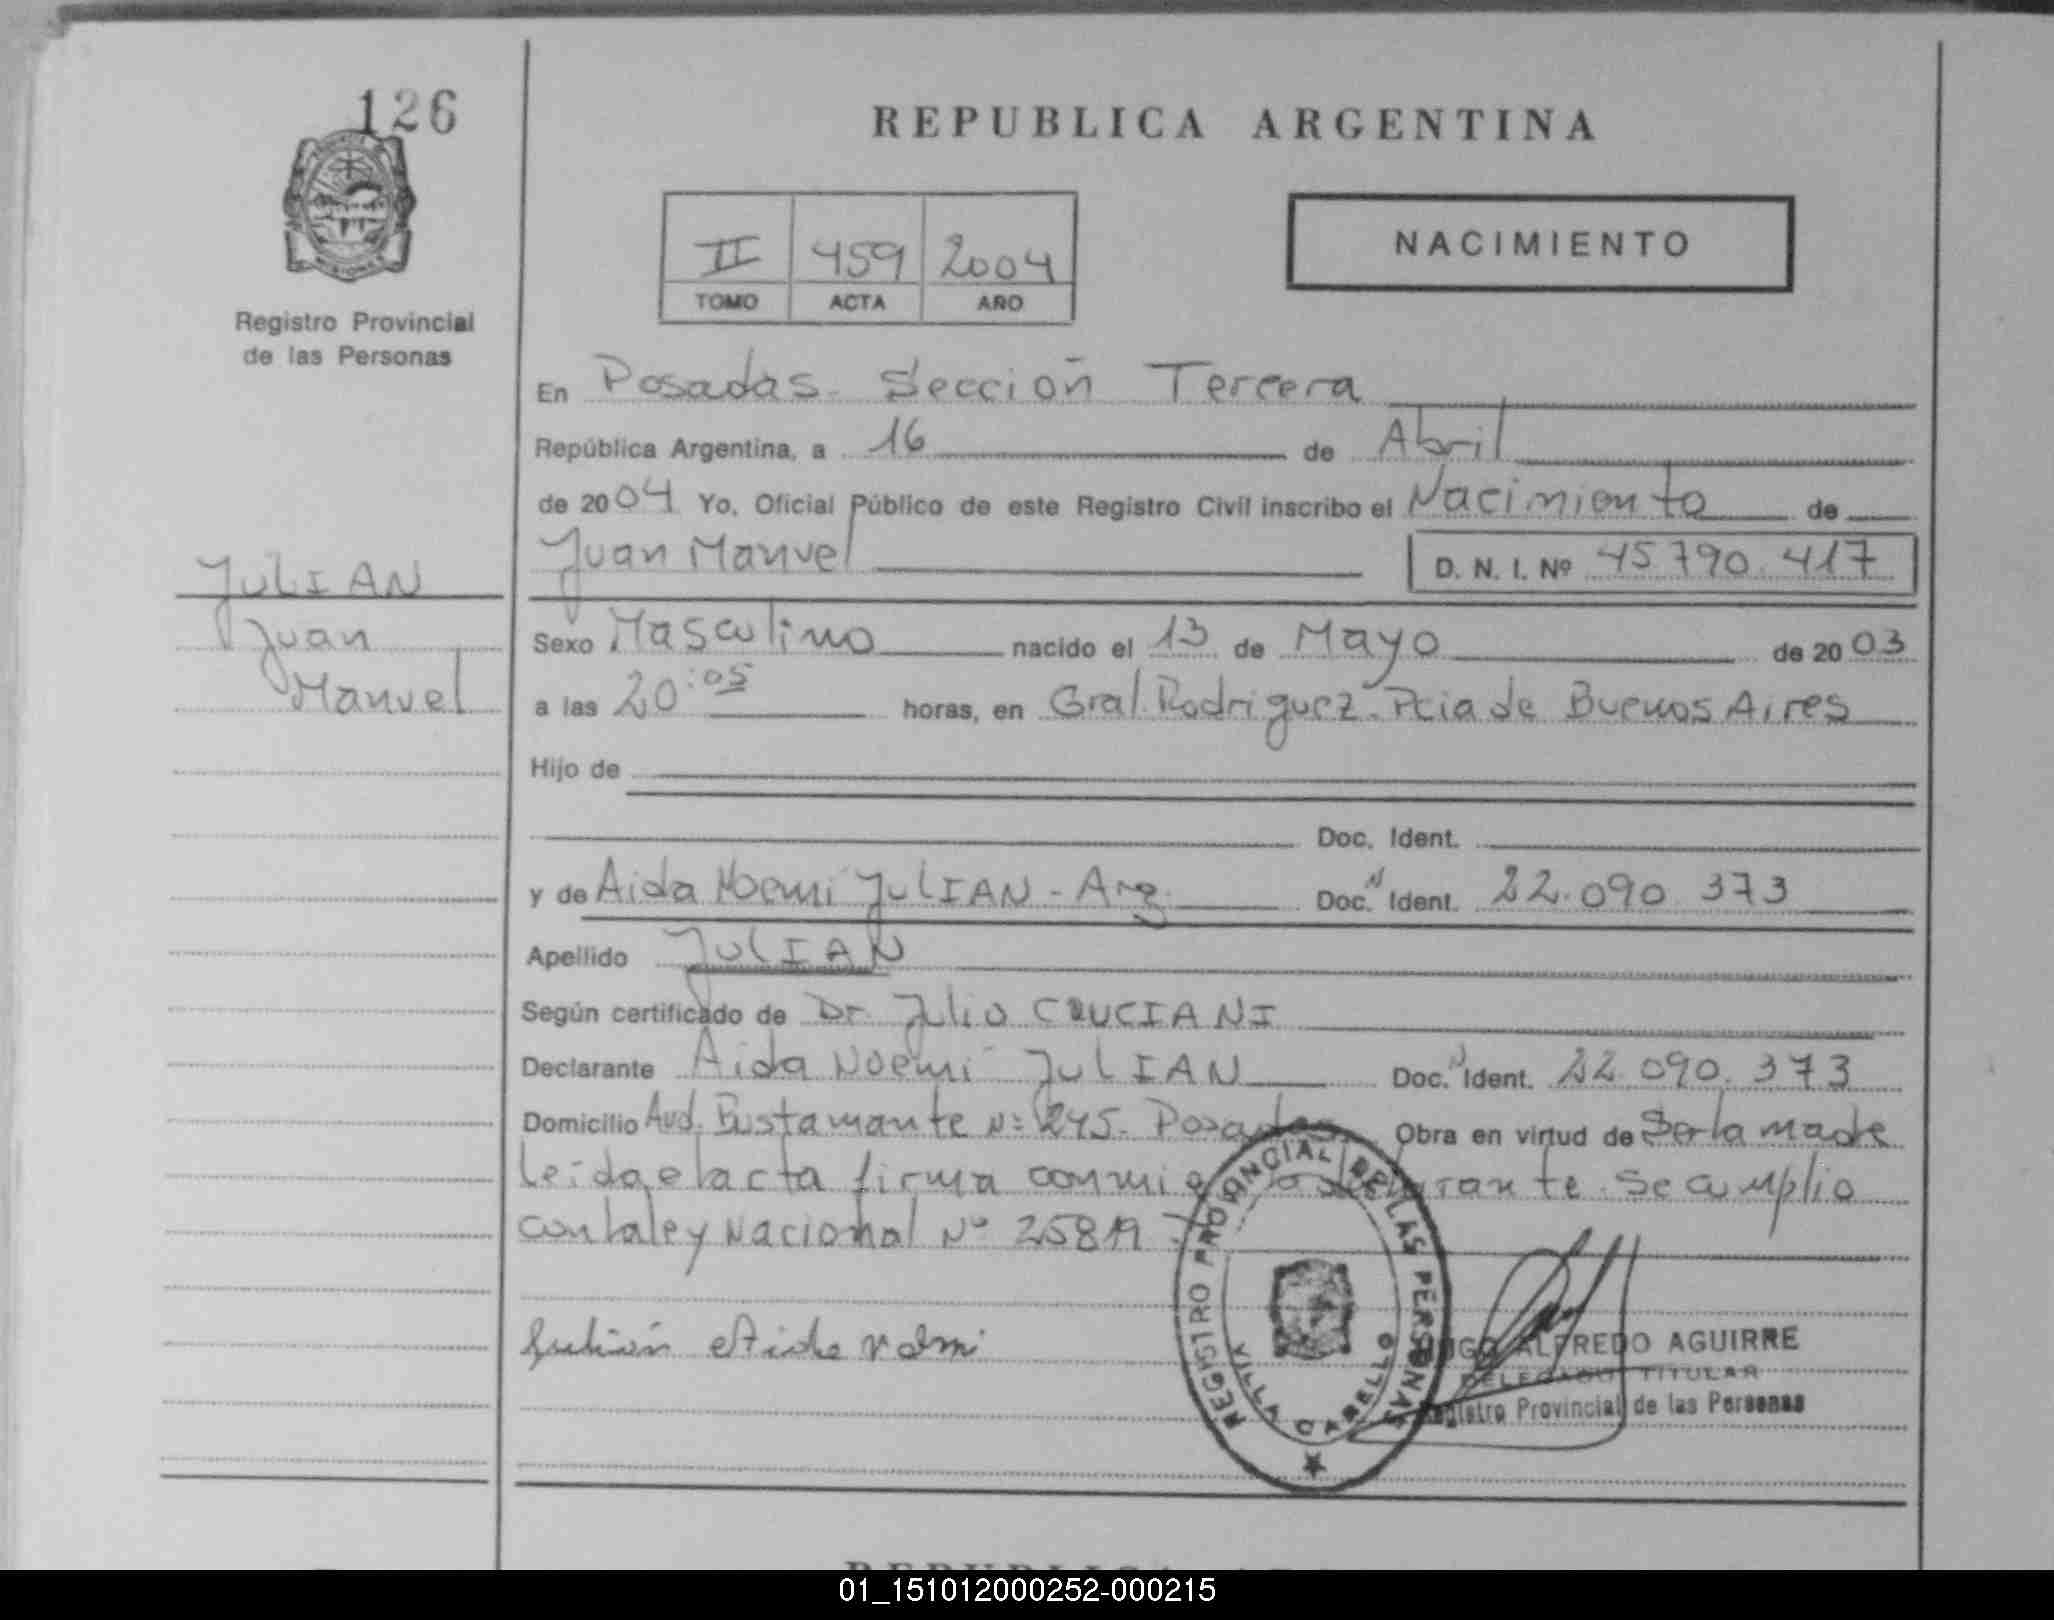 126
REPUBLICA ARGENTINA
II 459 2004
TOMO ACTA AÑO
NACIMIENTO
Registro Provincial
de las Personas
En Posadas. Sección Tercera
República Argentina, a 16 de Abril
de 2004 Yo, Oficial Público de este Registro Civil inscribo el Nacimiento de
Juan Manuel D. N. I. Nº 45 790. 417
JULIAN
Juan
Manuel
Sexo Masculino nacido el 13 de Mayo de 2003
a las 20:05 horas, en Gral. Rodriguez. Pcia de Buenos Aires
Hijo de
Doc. Ident.
y de Aida Noemí JULIAN - Arg. Doc. N Ident. 22.090.373
Apellido JULIAN
Según certificado de Dr. Julio CRUCIANI
Declarante Aida Noemí JULIAN Doc. N Ident. 22.090.373
Domicilio Avd. Bustamante Nº 245. Posadas Obra en virtud de Ser la madre
Leida el acta firma conmigo la declarante. Se cumplio
con la ley Nacional Nº 25819
Julián Aida Noemi
REGISTRO PROVINCIAL DE LAS PERSONAS
VILLA CABELLO
HUGO ALFREDO AGUIRRE
DELEGADO TITULAR
Registro Provincial de las Personas
01_151012000252-000215